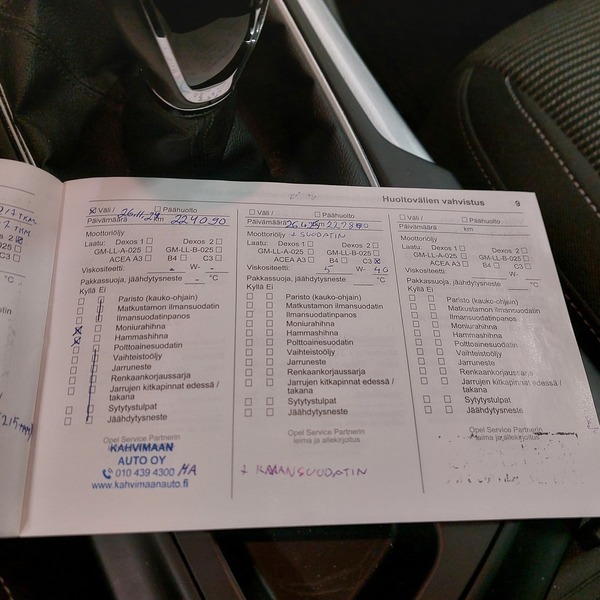 Huoltovälien vahvistus 9
☒ Väli / ☐ Päähuolto
Päivämäärä 26.11.24 km 224090
Moottoriöljy
Laatu: Dexos 1 ☐ Dexos 2 ☐
GM-LL-A-025 ☐ GM-LL-B-025 ☐
ACEA A3 ☐ B4 ☐ C3 ☐
Viskositeetti: - W- -
Pakkassuoja, jäähdytysneste - °C
Kyllä Ei
☐ ☐ Paristo (kauko-ohjain)
☐ ☐ Matkustamon ilmansuodatin
☐ ☐ Ilmansuodatinpanos
☒ ☐ Moniurahihna
☒ ☐ Hammashihna
☐ ☐ Polttoainesuodatin
☐ ☐ Vaihteistoöljy
☐ ☐ Jarruneste
☐ ☐ Renkaankorjaussarja
☐ ☐ Jarrujen kitkapinnat edessä /
takana
☐ ☐ Sytytystulpat
☐ ☐ Jäähdytysneste
Opel Service Partnerin
KAHVIMAAN
AUTO OY
010 439 4300 HA
www.kahvimaanauto.fi
☐ Väli / ☐ Päähuolto
Päivämäärä km
Moottoriöljy + SUODATIN
Laatu: Dexos 1 ☐ Dexos 2 ☐
GM-LL-A-025 ☐ GM-LL-B-025 ☐
ACEA A3 ☐ B4 ☐ C3 ☒
Viskositeetti: 5 W- 40
Pakkassuoja, jäähdytysneste °C
Kyllä Ei
☐ ☐ Paristo (kauko-ohjain)
☐ ☐ Matkustamon ilmansuodatin
☐ ☐ Ilmansuodatinpanos
☐ ☐ Moniurahihna
☐ ☐ Hammashihna
☐ ☐ Polttoainesuodatin
☐ ☐ Vaihteistoöljy
☐ ☐ Jarruneste
☐ ☐ Renkaankorjaussarja
☐ ☐ Jarrujen kitkapinnat edessä /
takana
☐ ☐ Sytytystulpat
☐ ☐ Jäähdytysneste
Opel Service Partnerin
leima ja allekirjoitus
☐ Väli / ☐ Päähuolto
Päivämäärä km
Moottoriöljy
Laatu: Dexos 1 ☐ Dexos 2 ☐
GM-LL-A-025 ☐ GM-LL-B-025 ☐
ACEA A3 ☐ B4 ☐ C3 ☐
Viskositeetti: W-
Pakkassuoja, jäähdytysneste °C
Kyllä Ei
☐ ☐ Paristo (kauko-ohjain)
☐ ☐ Matkustamon ilmansuodatin
☐ ☐ Ilmansuodatinpanos
☐ ☐ Moniurahihna
☐ ☐ Hammashihna
☐ ☐ Polttoainesuodatin
☐ ☐ Vaihteistoöljy
☐ ☐ Jarruneste
☐ ☐ Renkaankorjaussarja
☐ ☐ Jarrujen kitkapinnat edessä /
takana
☐ ☐ Sytytystulpat
☐ ☐ Jäähdytysneste
Opel Service Partnerin
leima ja allekirjoitus